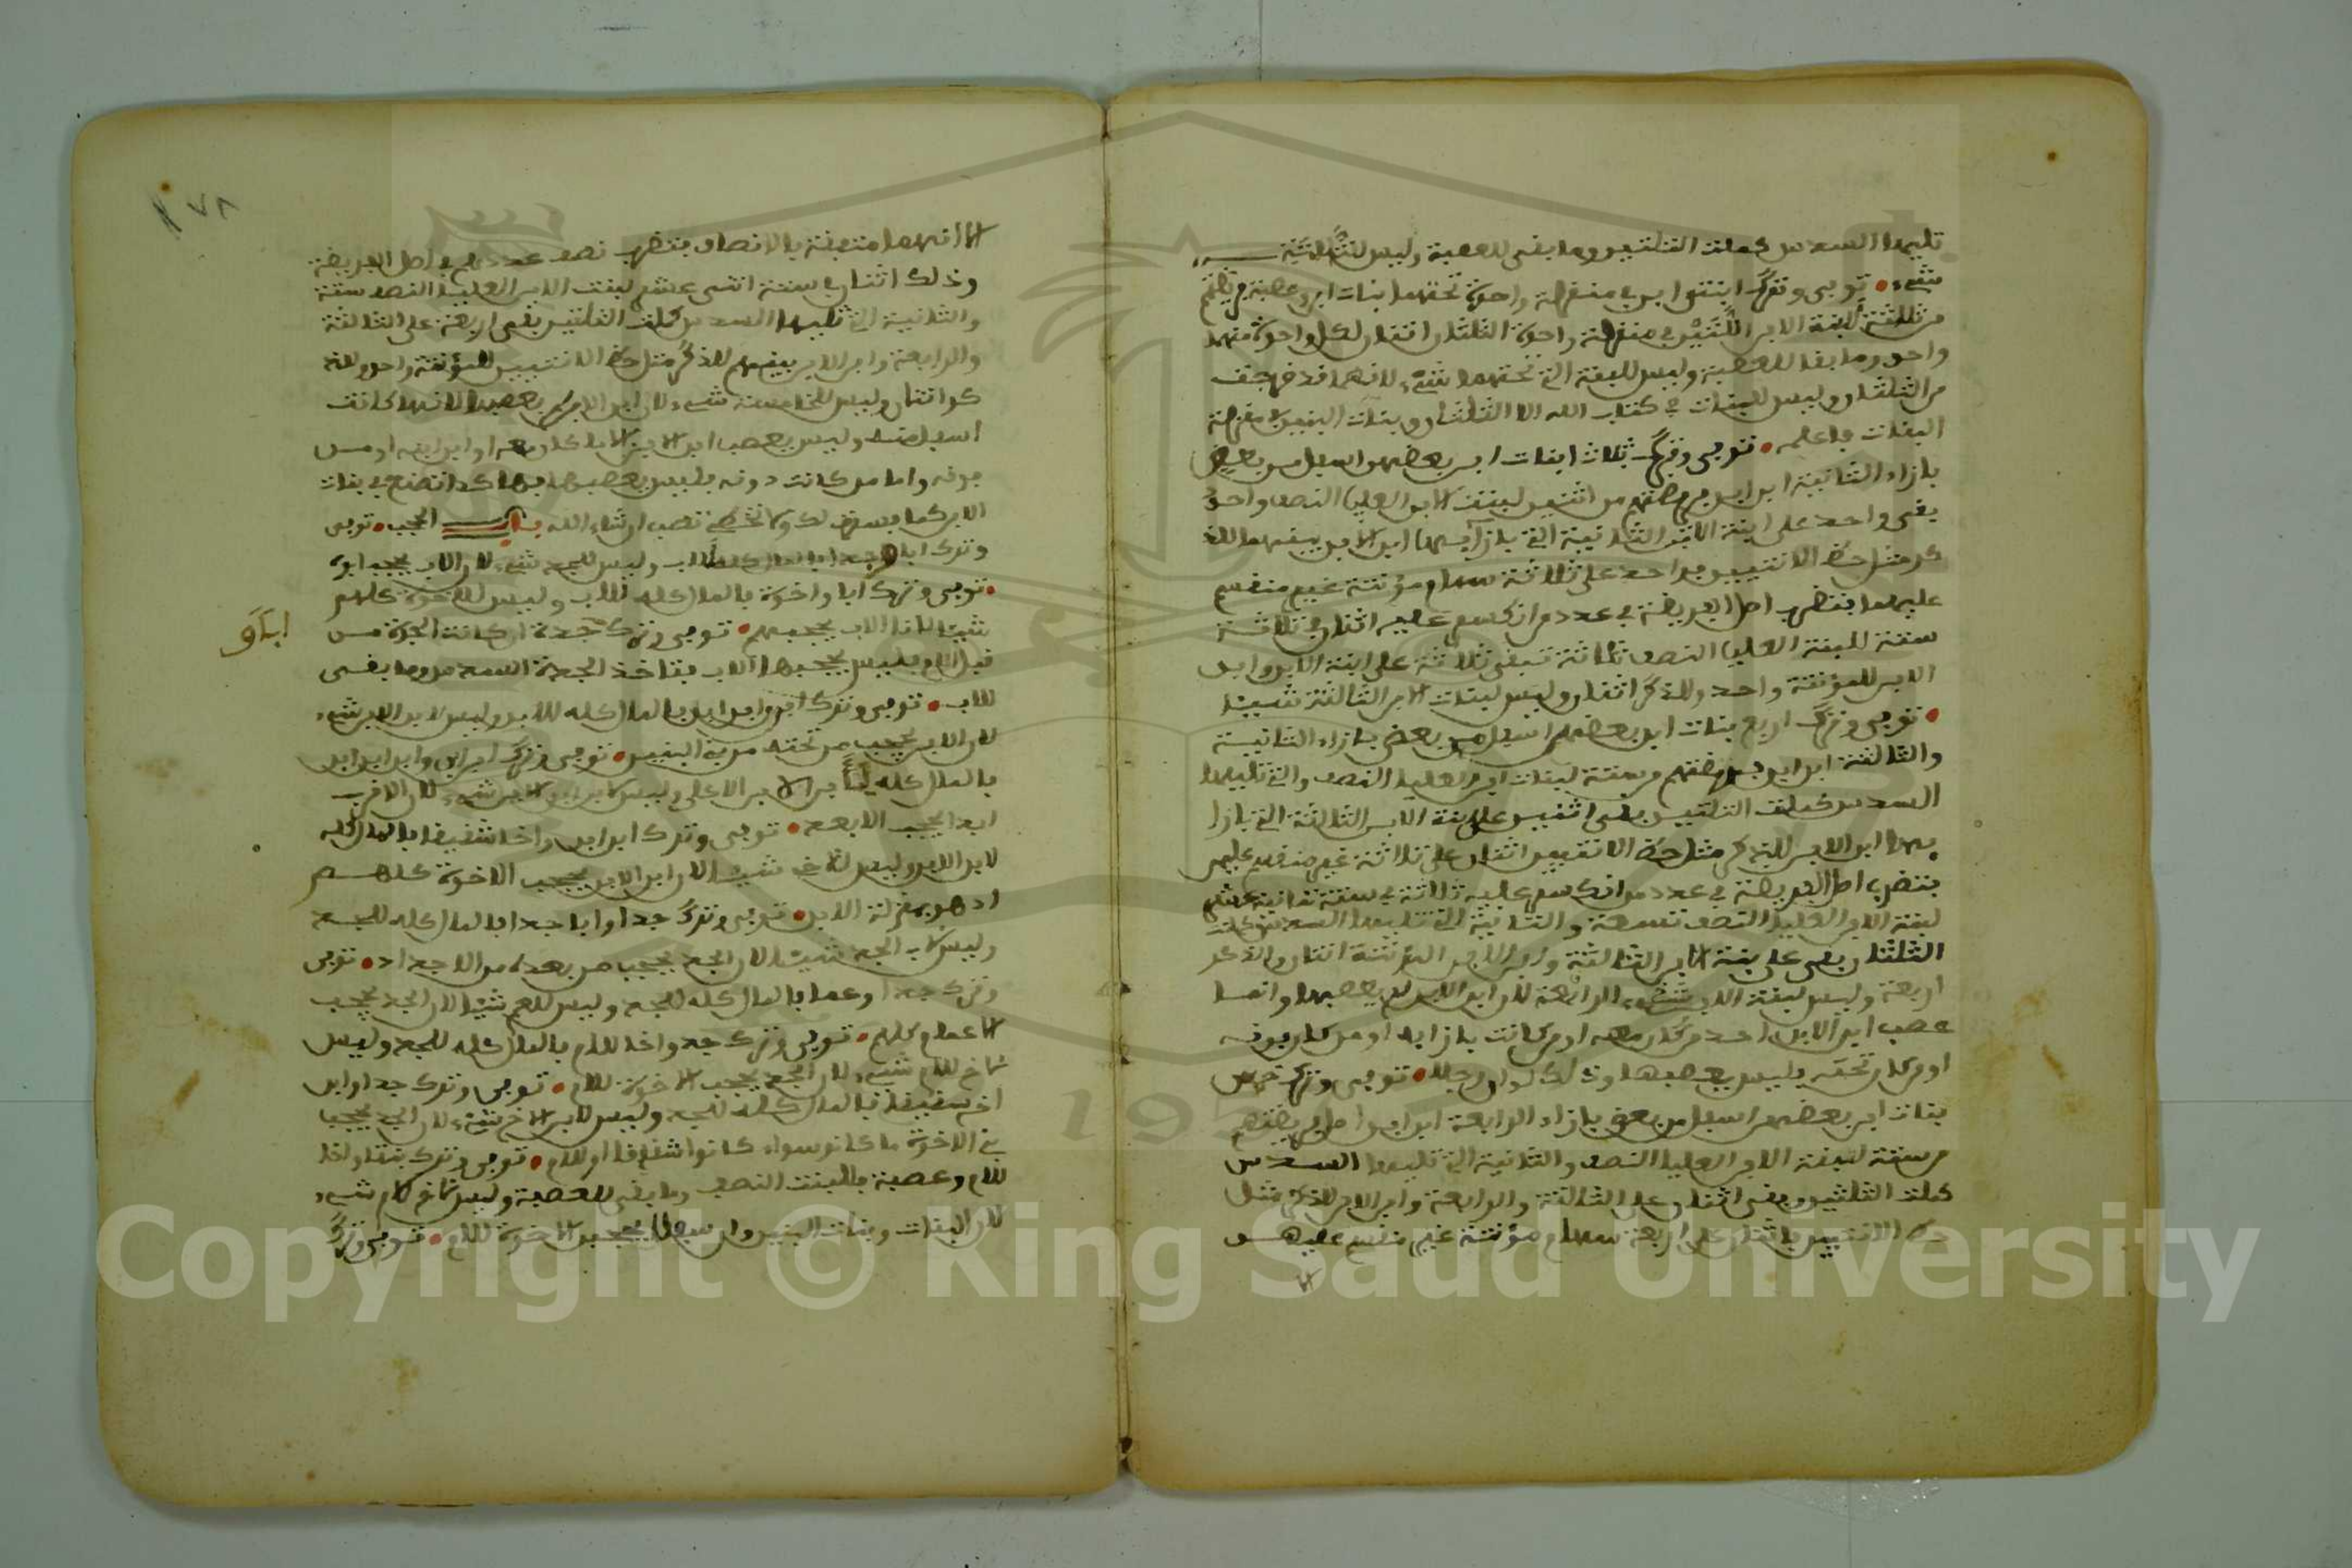 تليها السدس كملت الثلثين وما بقى للعصبة وليس للثالثة
شىء • توفى وترك ابنتى ابن فى منزلة واحدة تحتهما بنات ابن وعصبة فريضتهم
من ثلثة لابنة الابن اللتين فى منزلة واحدة الثلثان اثنان لكل واحدة منهما
واحد وما بقا للعصبة وليس للبنة التى تحتهما شىء لانهما قد
من الثلثان وليس للبنات فى كتاب الله الا الثلثان وبنات البنين بمنزلة
البنات فاعلمه • توفى وترك ثلاث ابنات ابن بعضهم اسفل من بعض
بازاء الثانية ابن ابن فريضتهم من اثنين لبنت الابن العليا النصف واحد
بقى واحد على ابنة الابن الثانية التى بازايها ابن الابن بينهما للذ
كر مثل حظ الانثيين فواحد على ثلاثة سهام مؤنثة غير منقسم
عليهما فتضرب اصل الفريضة فى عدد من انكسر عليه اثنان فى ثلاثة
ستة للبنة العليا النصف ثلاثة تبقى ثلاثة على ابنة الابن وابن
الابن للمؤنثة واحد وللذكر اثنان وليس لبنات الابن الثالثة شيئا
• توفى وترك اربع بنات ابن بعضهم اسفل من بعض بازاء الثانية
والثالثة ابن ابن فريضتهم من ستة لبنات ابن العليا النصف والتى تليها
السدس كملت الثلثين بقى اثنين على بنة الابن الثالثة التى بازا
يها ابن الابن للذكر مثل حظ الانثيين اثنان على ثلاثة غير منقسم عليهم
فتضرب اصل الفريضة فى عدد من انكسر عليه ثلاثة فى ستة ثمانية عشر
لبنة الابن العليا النصف تسعة والثانية التى تليها السدس كملت
الثلثان بقى على بنة الابن الثالثة وابن الابن المؤنثة اثنان والذكر
اربعة وليس لبنة الابن شىء الرابعة لان ابن الابن لم يعصبها وانما
عصب ابن الابن احد من كان معه او من كانت بازايه او من كان فوقه
او من كان تحته فليس يعصبها وذلك • توفى وترك خمس
بنات ابن بعضهم اسفل من بعض بازاء الرابعة ابن ابن اصل فريضتهم
من ستة لبنة الابن العليا النصف والثانية التى تليها السدس
كملت الثلثين وبقى اثنان على الثالثة والرابعة وابن الابن للذكر مثل
حظ الانثيين فاثنان على اربعة سهام مؤنثة غير منقسم عليهم
٧٨
الا انهما متفقة بالانصاف فتضرب نصف عددهم فى اصل الفريضة
وذلك اثنان فى ستة اثنى عشر لبنت الابن العليا النصف ستة
والثانية التى تليها السدس كملت الثلثين بقى اربعة على الثالثة
والرابعة وابن الابن بينهم للذكر مثل حظ الانثيين للمؤنثة واحد وللذ
كر اثنان وليس للخامسة شىء لان ابن الابن لم يعصبها لانها كانت
اسفل منه وليس يعصب ابن الابن الا ما كان معه او ابن ابنه او من
فوقه واما من كانت دونه فليس يعصبها فهاكذا تصنع فى بنات
الابن كما فسرت لك ولا تخطى تصب ان شاء الله باب الحجب • توفى
وترك ابا وجدا فالمال كله للاب وليس للجد شىء لان الاب يحجب ابوه
• توفى وترك ابا واخوة فالمال كله للاب وليس للاخوة كلهم
شيئا لان الاب يحجبهم • توفى وترك جدة ان كانت الجدة من
ابا و
قبل الام فليس يحجبها الاب فتاخذ الجدة السدس وما بقى
للاب • توفى وترك ابن وابن ابن فالمال كله للابن وليس لابن الابن شىء
لان الابن يحجب من تحته من بنى البنين • توفى وترك ابن ابن وابن ابن ابن
فالمال كله لابن الابن الاعلى وليس لابن ابن الابن شىء لان الاقرب
ابدا يحجب الابعد • توفى وترك ابن ابن واخا شقيقا فالمال كله
لابن الابن وليس للاخ شيئا لان ابن الابن يحجب الاخوة كلهم
اذ هو بمنزلة الابن • توفى وترك جدا وابا جد فالمال كله للجد
وليس لاب الجد شيئا لان الجد يحجب من بعده من الاجداد • توفى
وترك جدا وعما فالمال كله للجد وليس للعم شيئا لان الجد يحجب
الاعمام كلهم • توفى وترك جد واخا للام فالمال كله للجد وليس
لاخ للام شىء لان الجد يحجب الاخوة للام • توفى وترك جدا وابن
اخ شقيقا فالمال كله للجد وليس لابن الاخ شىء لان الجد يحجب
بنى الاخوة ما كانو سواء كانوا شقايقا او للام • توفى وترك بنتا واخا
للام وعصبة فالبنت النصف وما بقى للعصبة وليس لاخ لام شىء
لان البنات وبنات البنين وان سفلن يحجبن الاخوة للام • توفى وترك
Copyright © King Saud University